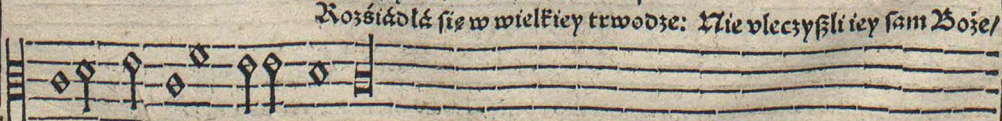 Rozśiádłá ſię w wielkiey trwodze: Nie vleczyßli iey ſam Boże/